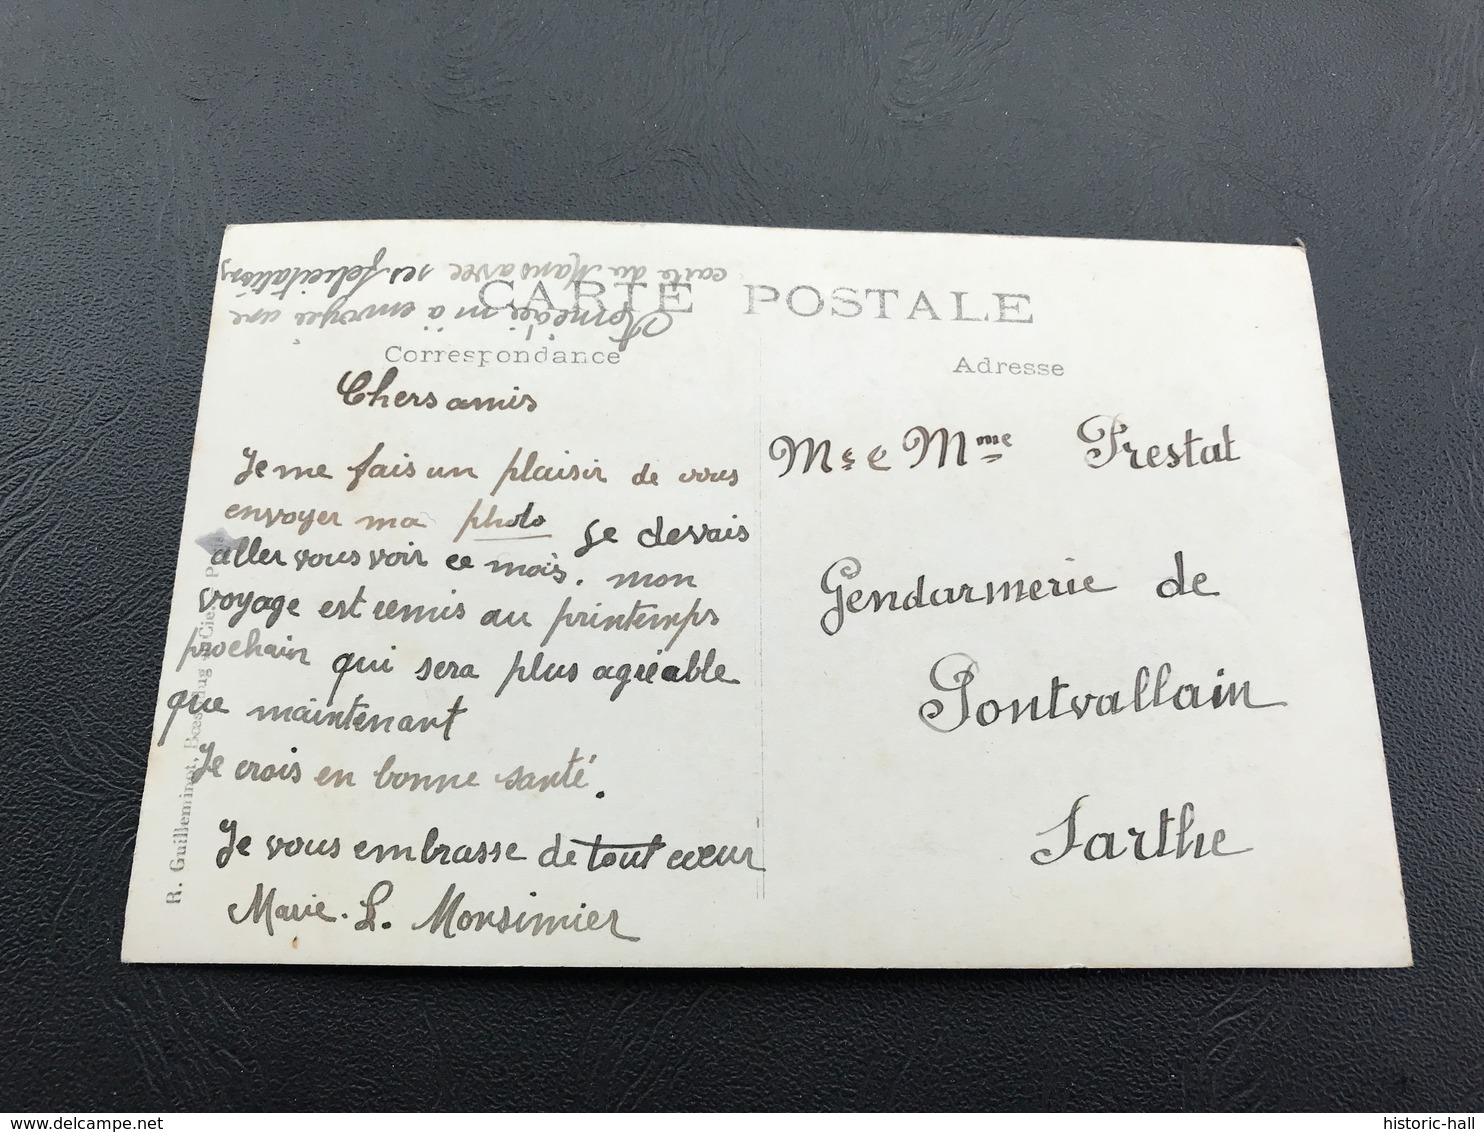 m'a envoyé une
carte du Mans avec ses félicitations
CARTE POSTALE
Correspondance
Chers amis
Je me fais un plaisir de vous
envoyer ma photo Je devais
aller vous voir ce mois. mon
voyage est remis au printemps
prochain qui sera plus agréable
que maintenant
Je crois en bonne santé.
Je vous embrasse de tout cœur
Marie. L. Monsimier
R. Guilleminot, Bœspflug et Cie. Paris
Adresse
Mr e Mme Prestat
Gendarmerie de
Pontvallain
Sarthe
historic-hall